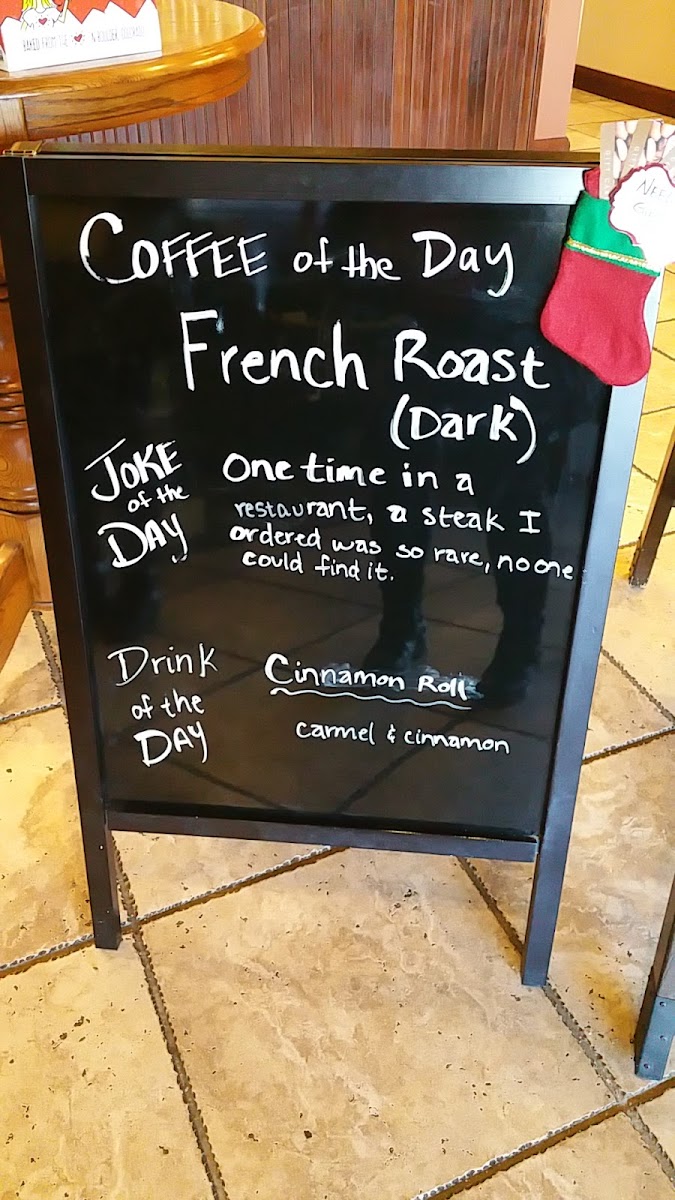 BAKED FROM THE
N BOULDER, COLORADO
COFFEE of the Day
French Roast
(Dark)
JOKE
of the
DAY
One time in a
restaurant, a steak I
ordered was so rare, no one
could find it.
Drink
of the
DAY
Cinnamon Roll
carmel & cinnamon